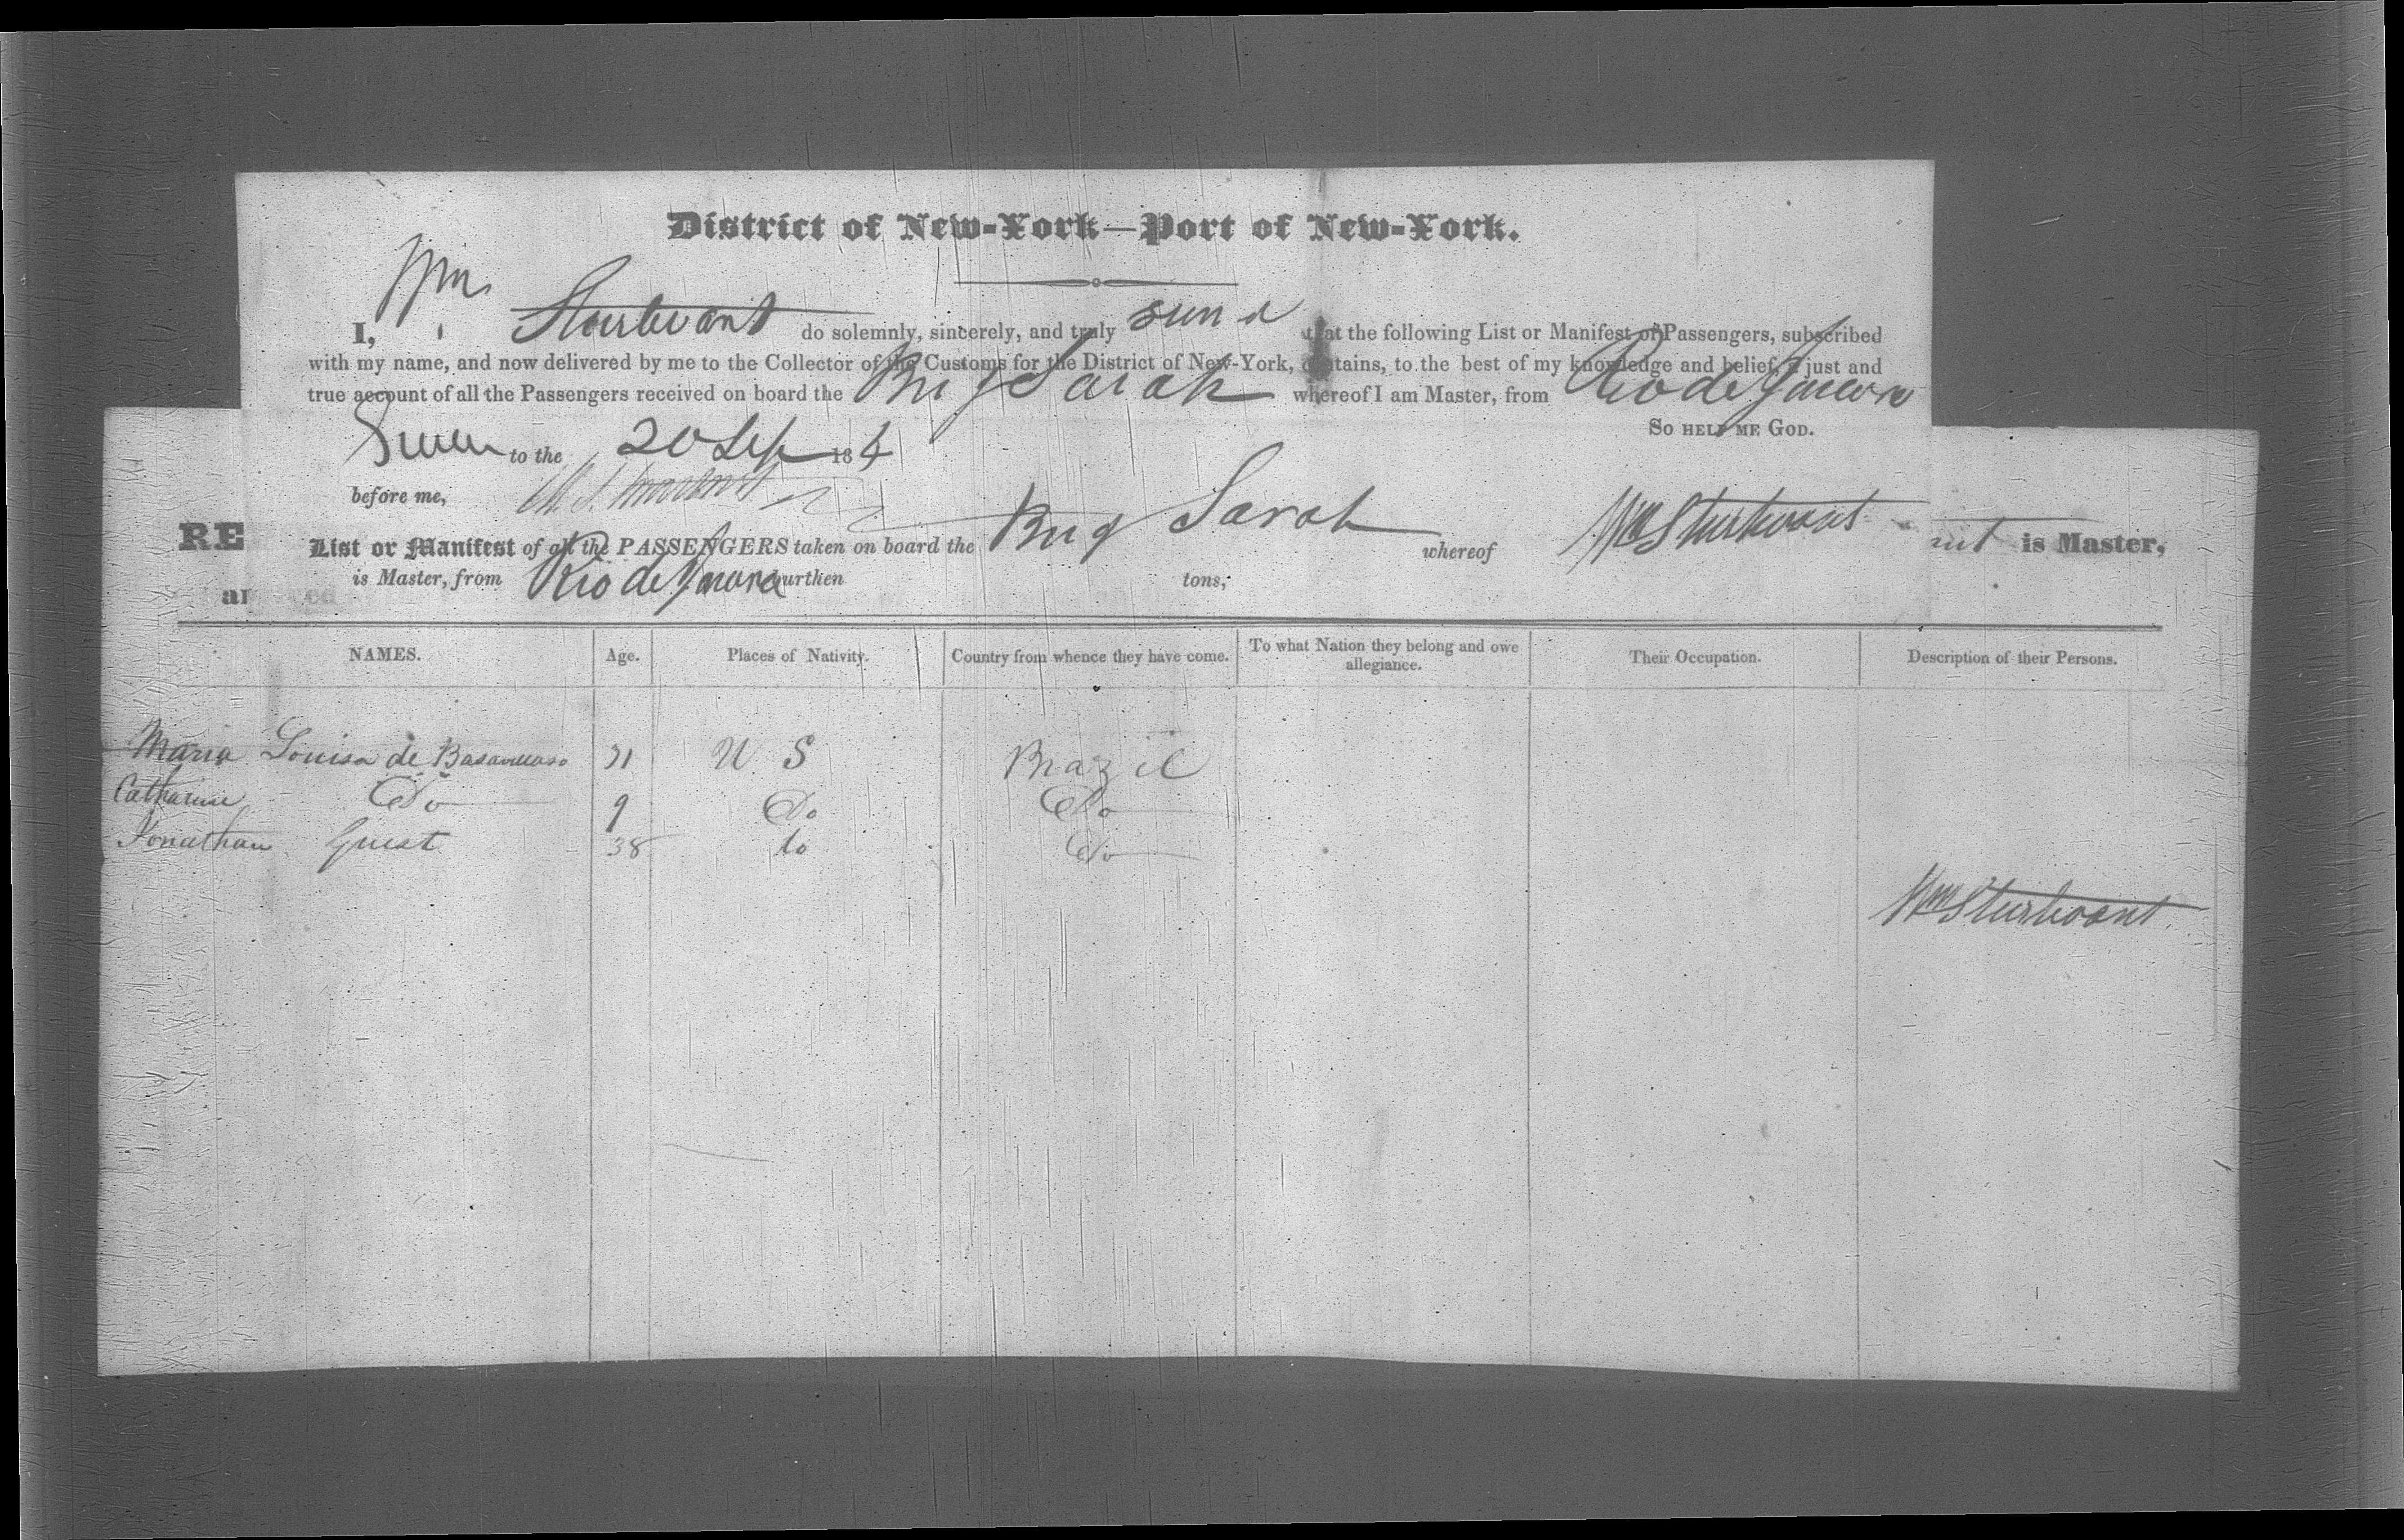 District of New-York—Port of New-York.
I, Wm Sturtevant do solemnly, sincerely, and truly that the following List or Manifest of Passengers, subscribed
with my name, and now delivered by me to the Collector of the Customs for the District of New-York, contains, to the best of my knowledge and belief, a just and
true account of all the Passengers received on board the Brig Sarah whereof I am Master, from Rio de Janeiro
So help me God.
Sworn to the 20 Sep 184
before me,
RE
List or Manifest of all the PASSENGERS taken on board the Brig Sarah whereof Wm Sturtevant ant is Master,
is Master, from Rio de Janeiro burthen tons,
arrived
NAMES. Age. Places of Nativity. Country from whence they have come. To what Nation they belong and owe allegiance. Their Occupation. Description of their Persons.
Maria Louisa de U S Brazil
Catharine Do 9 Do Do
Jonathan Guest 38 do Do
Wm Sturtevant